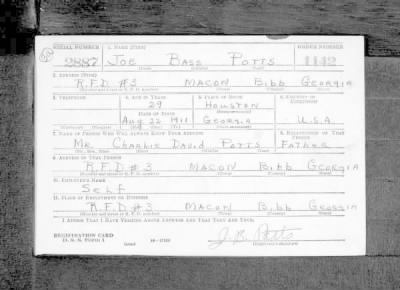 SERIAL NUMBER 1. NAME (Print) ORDER NUMBER
2887 JOE BASS POTTS 1142
(First) (Middle) (Last)
2. ADDRESS (Print)
R.F.D #3 MACON BIBB GEORGIA
3. TELEPHONE 4. AGE IN YEARS 5. PLACE OF BIRTH 6. COUNTRY OF CITIZENSHIP
29 HOUSTON
DATE OF BIRTH
Aug 22 1911 GEORGIA U.S.A.
(Mo.) (Day) (Yr.)
7. NAME OF PERSON WHO WILL ALWAYS KNOW YOUR ADDRESS 8. RELATIONSHIP OF THAT PERSON
MR. CHARLIE DAVID POTTS FATHER
9. ADDRESS OF THAT PERSON
R.F.D #3 MACON BIBB GEORGIA
10. EMPLOYER'S NAME
SELF
11. PLACE OF EMPLOYMENT OR BUSINESS
R.F.D #3 MACON BIBB GEORGIA
I AFFIRM THAT I HAVE VERIFIED ABOVE ANSWERS AND THAT THEY ARE TRUE.
REGISTRATION CARD
D. S. S. FORM 1
J. B. Potts